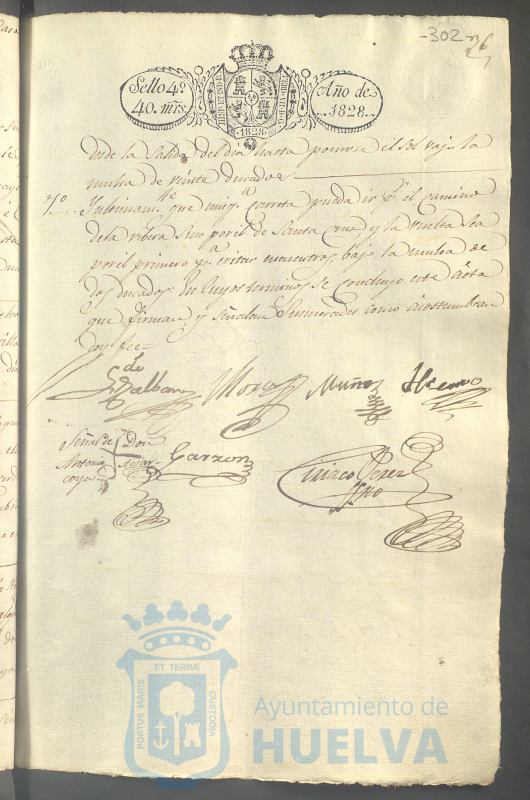 -302-
26
Sello 4º
40. mrs.
HISP. ET IND. R.
1828
Año de
1828.
desde la Salida del dia hasta ponerse el Sol vajo la
multa de veinte ducados
7º Ultimamte que ning.a carreta pueda ir pr. el camino
dela ribera Sino por el de Santa Cruz y la vuelta sea
por el primero pa. evitar encuentros, bajo la multa de
dos ducados. En Cuyos terminos se concluyo este Acta
que firman, y señalan Sumercedes como acostumbran
doy fee-
de
Galban Mora Muñoz
Señal de Don
Antonio
Garzon
Ciriaco Perez
ssno
ET TERRÆ
PORTUS MARIS
CUSTODIA
Ayuntamiento de
HUELVA